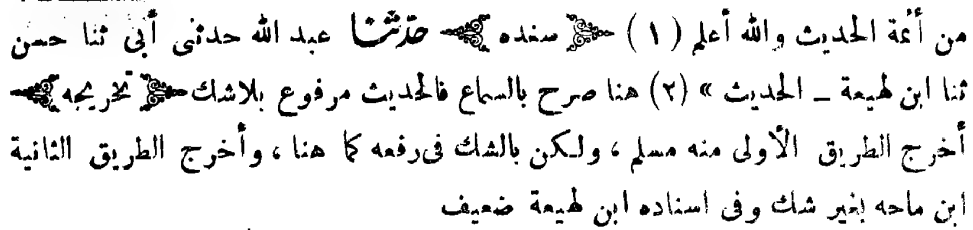 من أئمة الحديث والله أعلم (١) ﴿ سنده ﴾ حدثنا عبد الله حدثنى أبى ثنا حسن
ثنا ابن لهيعة ـ الحديث » (٢) هنا صرح بالسماع فالحديث مرفوع بلاشك ﴿ تخريجه ﴾
أخرج الطريق الأولى منه مسلم ، ولكن بالشك فى رفعه كما هنا ، وأخرج الطريق الثانية
ابن ماجه بغير شك وفى اسناده ابن لهيعة ضعيف